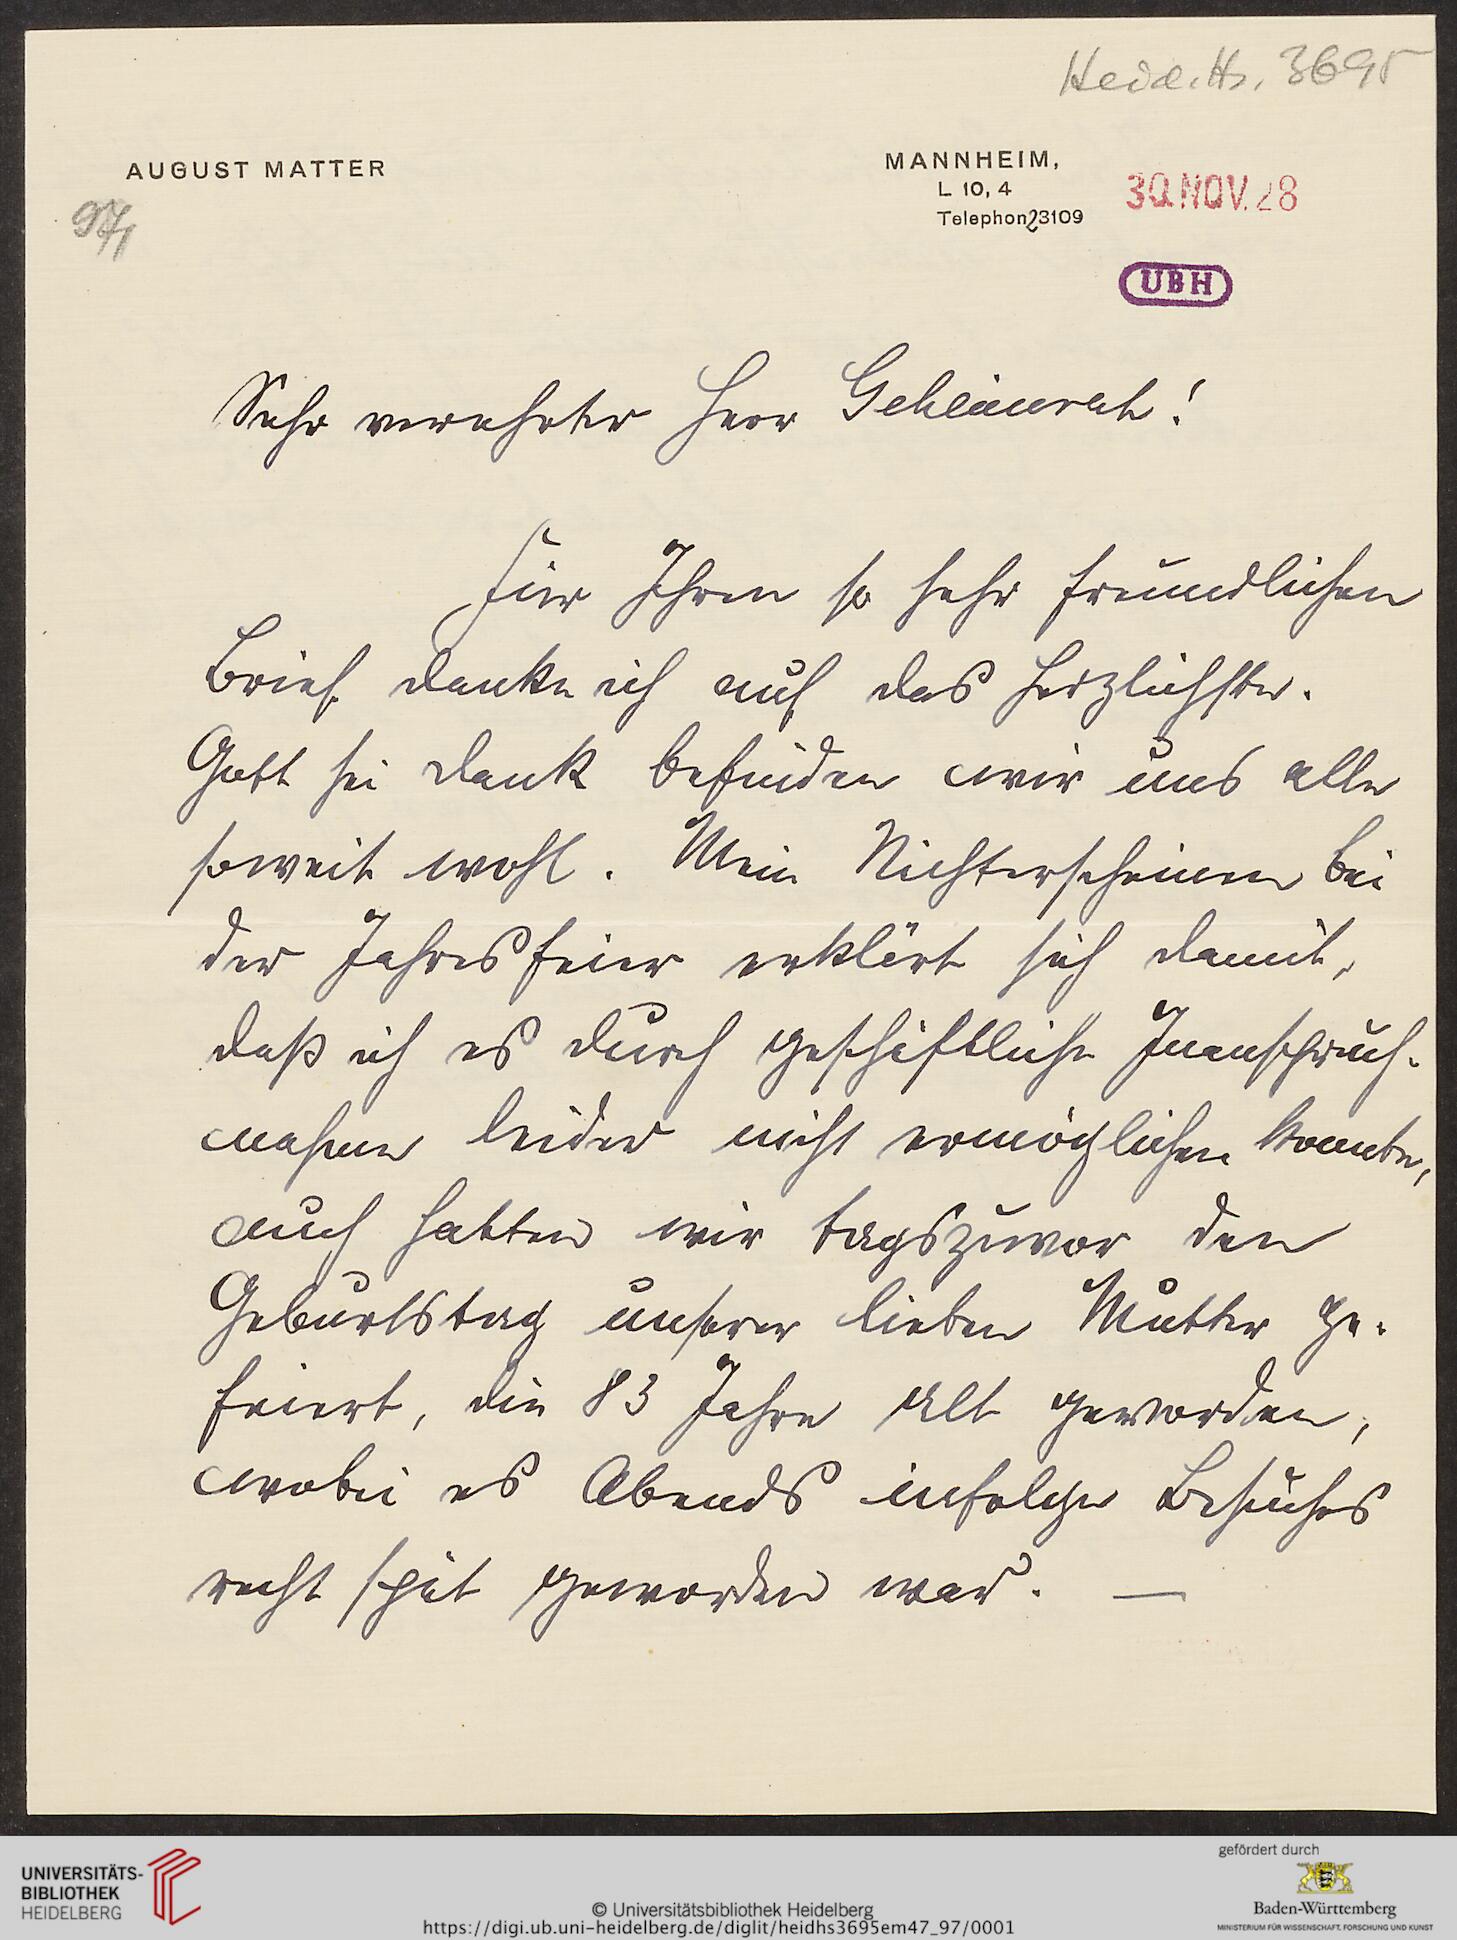 Heid. Hs. 3695
AUGUST MATTER
MANNHEIM,
L 10, 4
Telephon 23109
30. NOV. 28
97,
UBH
Sehr verehrter Herr Geheimrat!
Für Ihren so sehr freundlichen
Brief danke ich auf das Herzlichste.
Gott sei Dank befinden wir uns alle
soweit wohl. Mein Nichterscheinen bei
der Jahresfeier erklärt sich damit,
daß ich es durch geschäftliche Inanspruch-
nahme leider nicht ermöglichen konnte,
auch hatten wir tagszuvor den
Geburtstag unserer lieben Mutter ge-
feiert, die 83 Jahre alt geworden,
wobei es Abends infolge Besuches
recht spät geworden war. —
UNIVERSITÄTS-
BIBLIOTHEK
HEIDELBERG
© Universitätsbibliothek Heidelberg
https://digi.ub.uni-heidelberg.de/diglit/heidhs3695em47_97/0001
gefördert durch
Baden-Württemberg
MINISTERIUM FÜR WISSENSCHAFT, FORSCHUNG UND KUNST